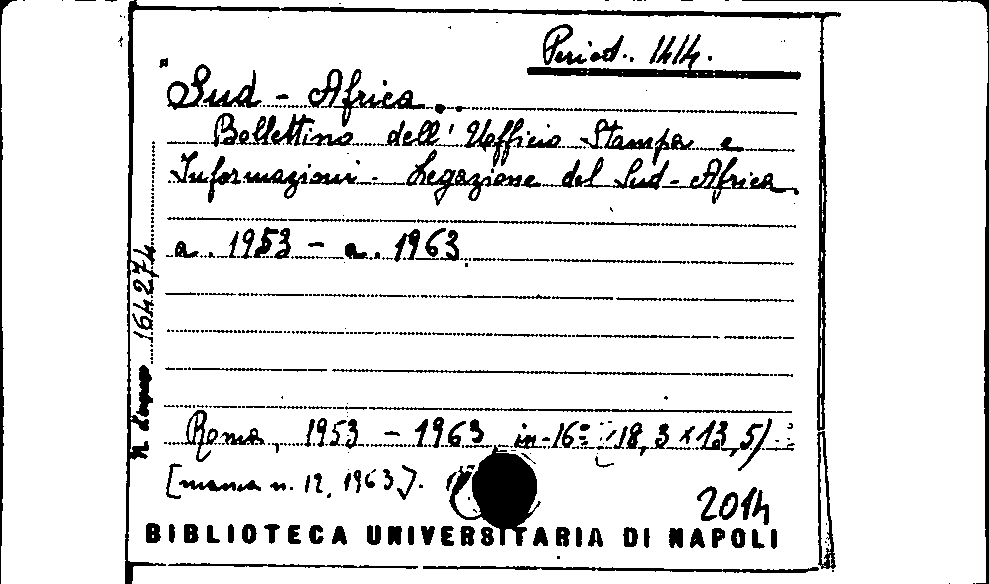 Period. 1414.
Sud - Africa..
Bollettino dell' Ufficio Stampa e
Informazioni - Legazione del Sud-Africa.
a. 1953 - a. 1963.
N. d'ingresso 164274
Roma, 1953 - 1963 in-16° (18,3 x 13,5)
[manca n. 12, 1963].
2014
BIBLIOTECA UNIVERSITARIA DI NAPOLI